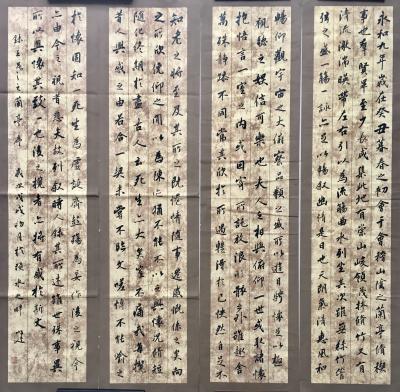 永和九年歲在癸丑暮春之初會于會稽山陰之蘭亭脩禊
事也群賢畢至少長咸集此地有崇山峻領茂林脩竹又有
清流激湍映帶左右引以為流觴曲水列坐其次雖無絲竹管
弦之盛一觴一詠亦足以暢敘幽情是日也天朗氣清惠風和
暢仰觀宇宙之大俯察品類之盛所以遊目騁懷足以極
視聽之娛信可樂也夫人之相與俯仰一世或取諸懷
抱悟言一室之內或因寄所託放浪形骸之外雖趣舍
萬殊靜躁不同當其欣於所遇暫得於己快然自足不
知老之將至及其所之既倦情隨事遷感慨係之矣向
之所欣俛仰之間以為陳迹猶不能不以之興懷況脩短
隨化終期於盡古人云死生亦大矣豈不痛哉每攬
昔人興感之由若合一契未嘗不臨文嗟悼不能喻之
於懷固知一死生為虛誕齊彭殤為妄作後之視今
亦由今之視昔悲夫故列敘時人錄其所述雖世殊事異
所以興懷其致一也後之攬者亦將有感於斯文
錄王羲之蘭亭序